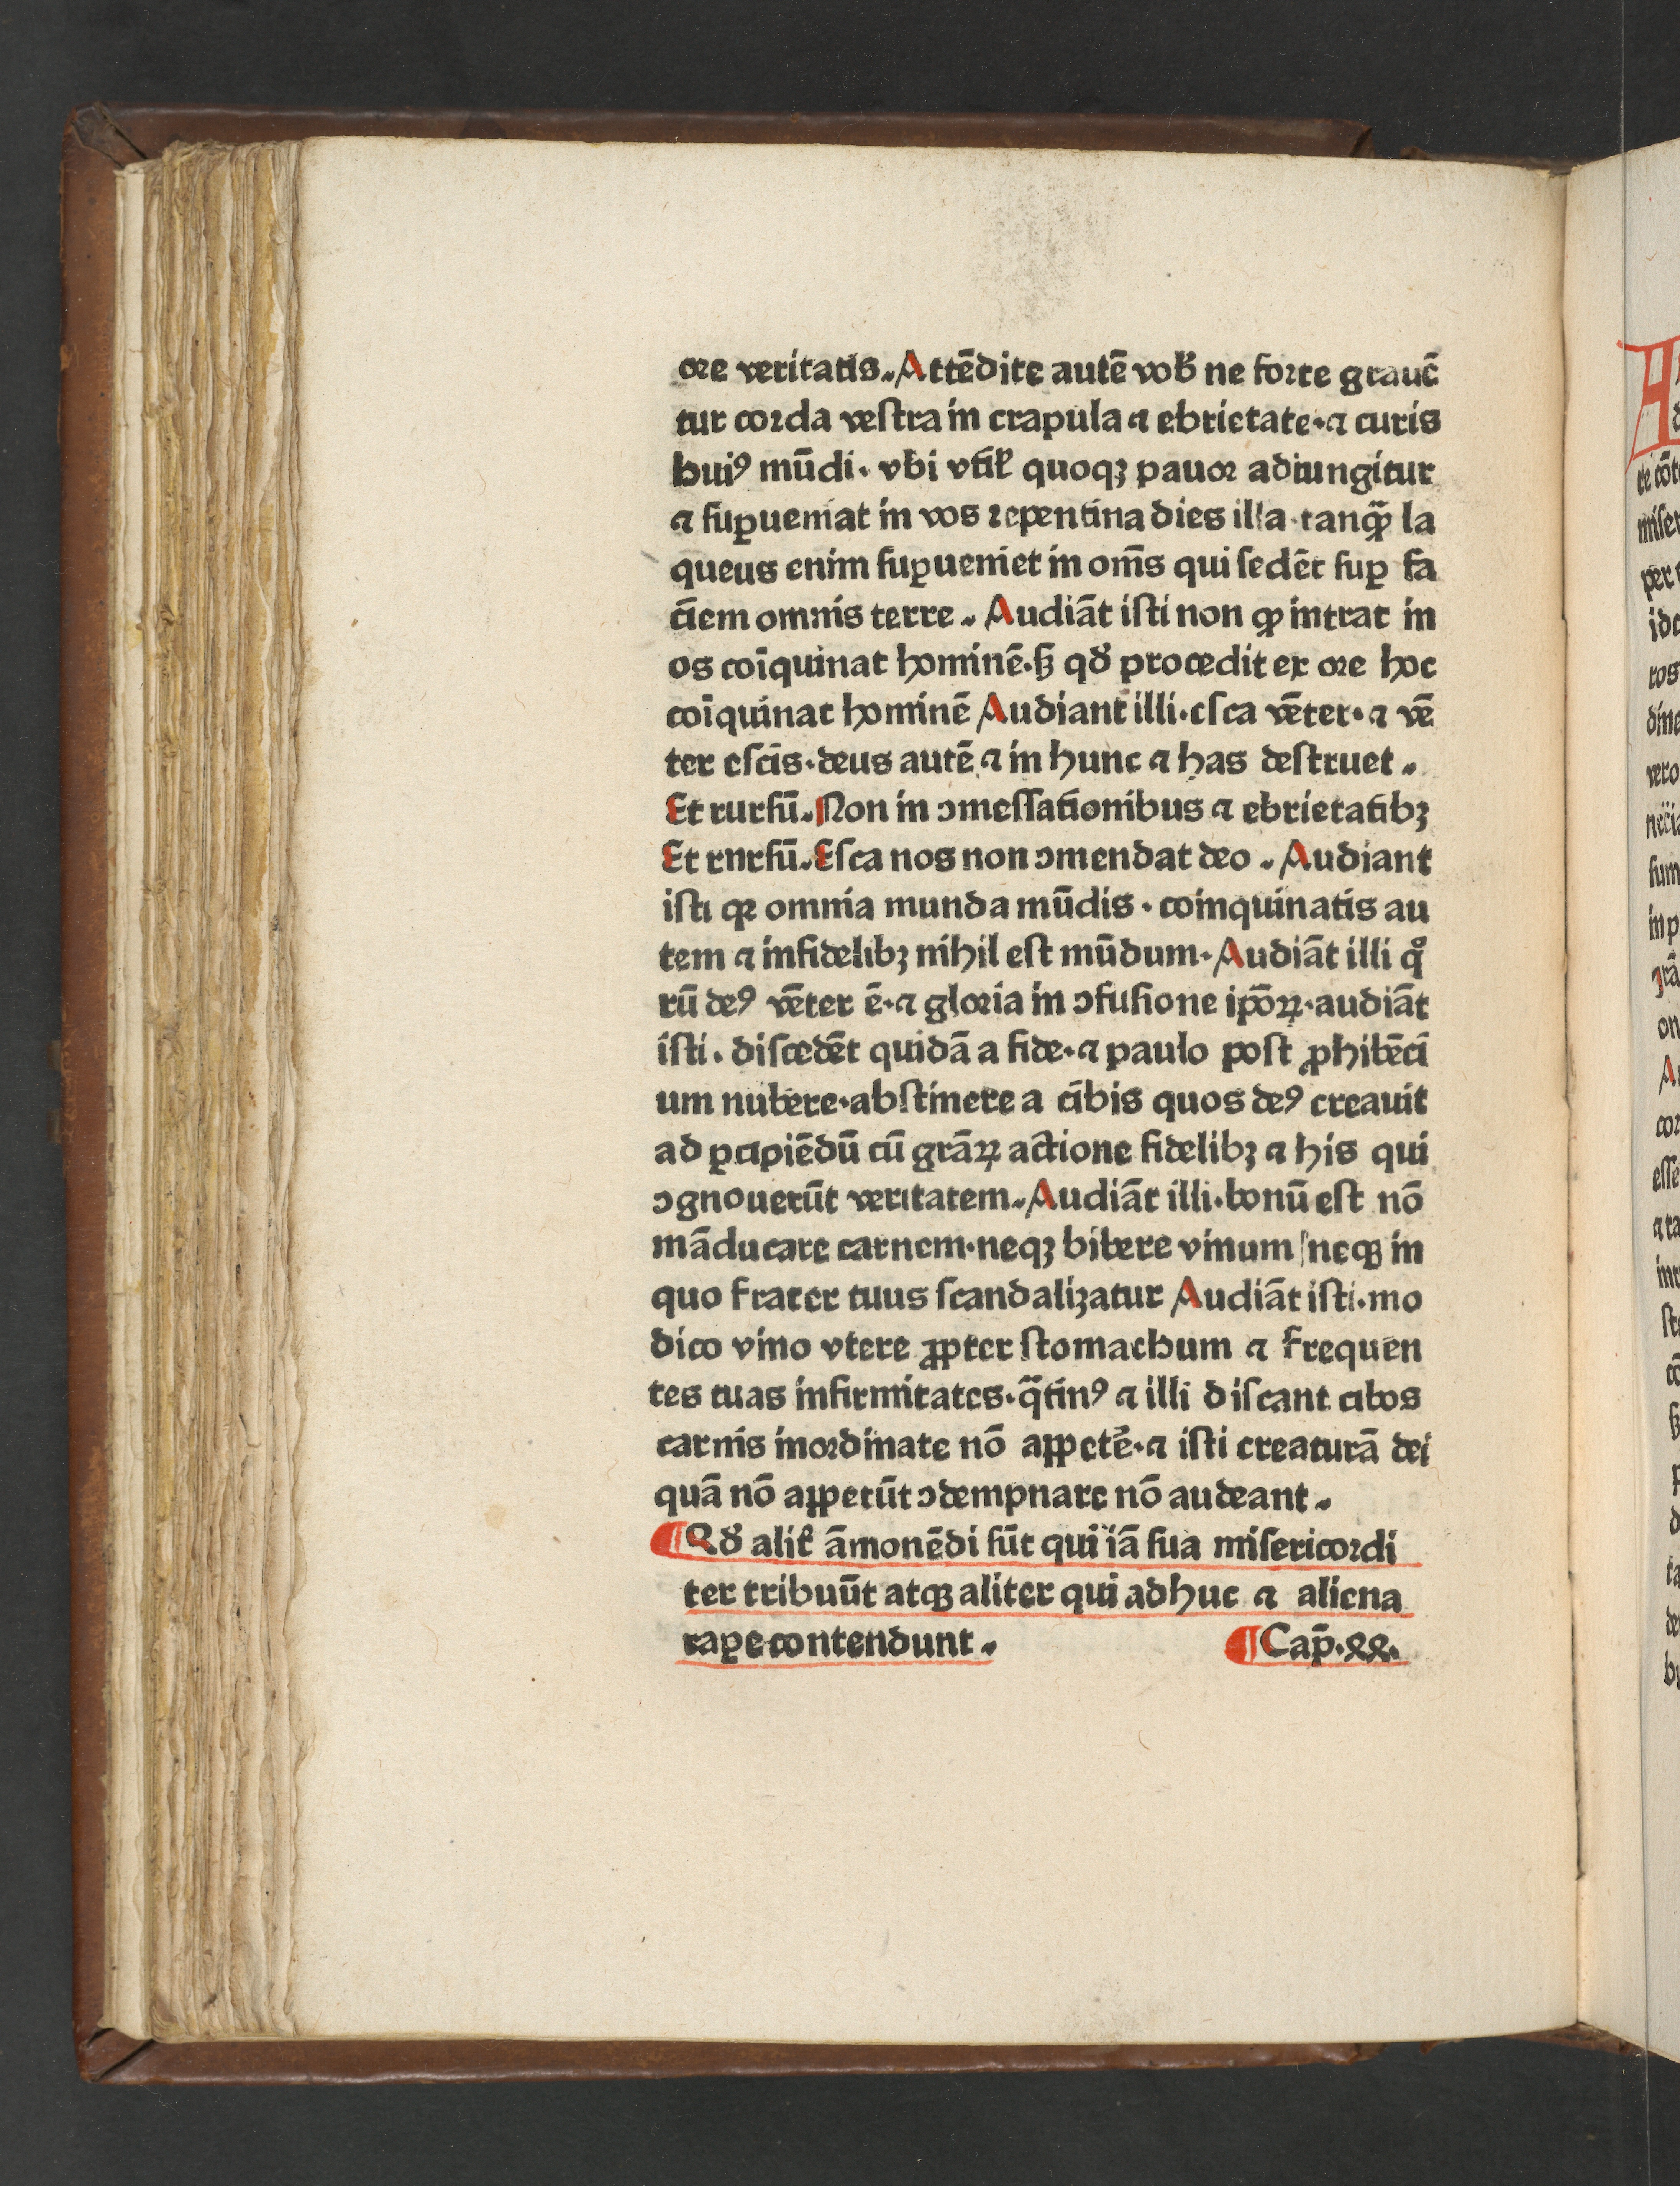 ore veritatis. Attēdite autē vob̄ ne forte grauē
tur corda veſtra in crapula ⁊ ebrietate· ⁊ curis
huiꝰ mūdi· vbi vtil̄ quoqꝫ pauor adiungitur
⁊ ſuꝑueniat in vos repentina dies illa·tanꝙ̄ la
queus enim ſuꝑueniet in om̄s qui ſedēt ſuꝑ fa
ciem omnis terre. Audiāt iſti non ꝙ intrat in
os coīquinat hominē·ſꝫ qđ procedit ex ore hoc
coīquinat hominē Audiant illi·eſca vēter· ⁊ vē
ter eſcis·deus autē ⁊ in hunc ⁊ has deſtruet.
Et rurſū. Non in ↄmeſſationibus ⁊ ebrietatibꝫ
Et rnrſū. Eſca nos non ↄmendat deo. Audiant
iſti qꝛ omnia munda mūdis· coinquinatis au
tem ⁊ infidelibꝫ nihil eſt mūdum· Audiāt illi qͦ
rū deꝰ vēter ē· ⁊ gloria in ↄfuſione ip̄oꝝ·audiāt
iſti· diſcedēt quidā a fide· ⁊ paulo poſt ꝓhibēci
um nubere·abſtinere a cibis quos deꝰ creauit
ad ꝑcipiēdū cū grāꝝ actione fidelibꝫ ⁊ his qui
ↄgnouerūt veritatem. Audiāt illi·bonū eſt nō
māducare carnem·neqꝫ bibere vinum neqꝫ in
quo frater tuus ſcandalizatur Audiāt iſti·mo
dico vino vtere ꝓpter ſtomachum ⁊ frequen
tes tuas infirmitates·q̄tinꝰ ⁊ illi diſcant cibos
carnis inordinate nō appetē̄· ⁊ iſti creaturā dei
quā nō appetūt ↄdempnare nō audeant.
¶Qđ alit̄ āmonēdi ſūt qui iā ſua miſericordi
ter tribuūt atqꝫ aliter qui adhuc ⁊ aliena
raꝑe contendunt. ¶Cap̄·xx.